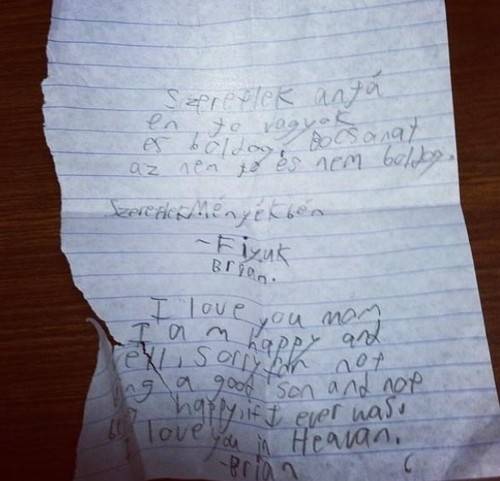 Szeretlek anyá
en jo vagyok
és boldog, Bocsanat
az nem jo és nem boldog.
Szeretlek Ményékbén
~Fiyuk
Brian.
I love you mom
I am happy and
ell, sorry for not
ing a good son and not
happy, if I ever was.
I love you in Heavan.
-Brian